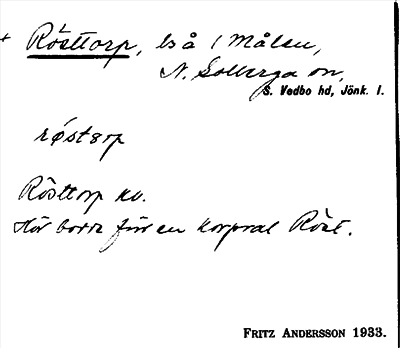 + Rösttorp, ls å / Målen,
N. Solberga sn,
S. Vedbo hd, Jönk. l.
røstorp
Rösttorp kv.
Här bodde förr en korpral Röst.
FRITZ ANDERSSON 1933.